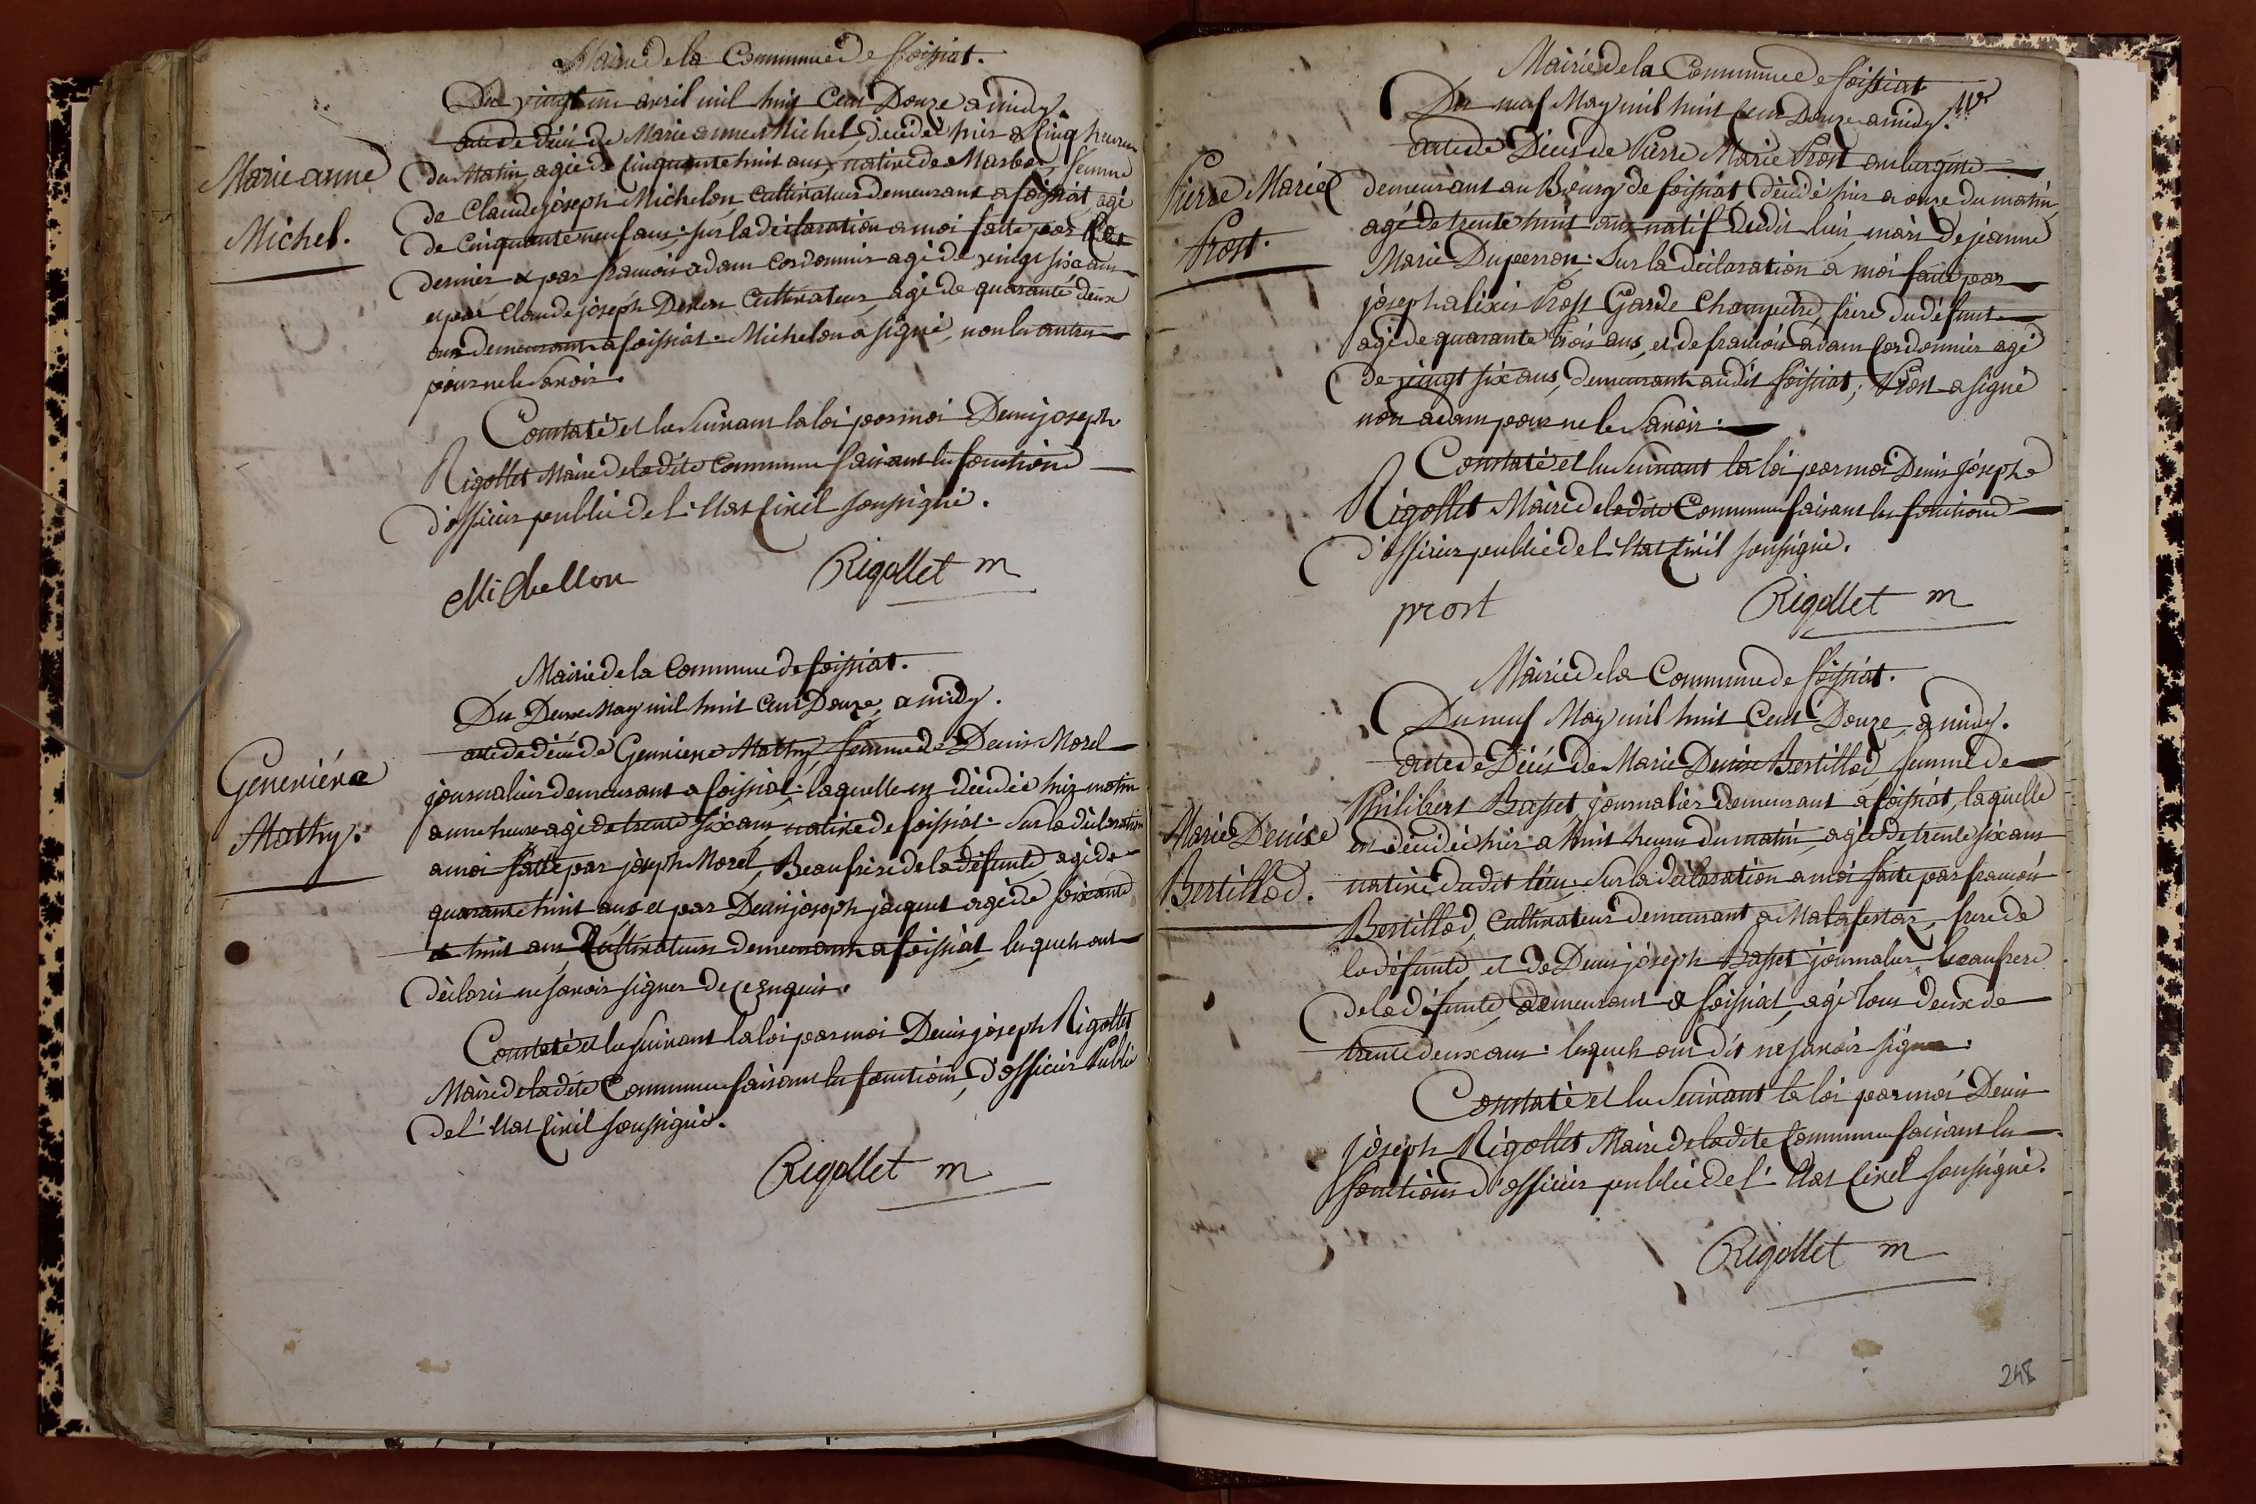 Mairie de la Commune de foissiat.
Du vingt un avril mil huit Cent Douze a midy.
acte de décès de Marie anne Michel, décédée hier a Cinq heures
du Matin, agée de Cinquante huit ans, native de Marboz, femme
de Claude joseph Michelon Cultivateur demeurant a foissiat, agé
de Cinquante neuf ans; sur la déclaration a moi faitte par
dernier & par francois adam Cordonnier agé de vingt six ans
et par Claude joseph Cultivateur, agé de quarante deux
ans demeurant a foissiat. Michelon a signé, non les autres
pour ne le Savoir.
Marie anne
Michel.
Constaté et lu Suivant la loi par moi Denis joseph
Rigollet Maire de ladite Commune faisant les fonctions
d'officier public de l'Etat Civil soussigné.
Michellon
Rigollet m
Mairie de la Commune de foissiat.
Du Deux May mil huit Cent Douze, a midy.
acte de décès de Genevieve Mathy, femme de Denis Morel
journalier demeurant a foissiat: laquelle est décédée hier matin
a une heure agée de trente six ans native de foissiat. Sur la déclaration
a moi faitte par joseph Morel, Beaufrere de la défunte, agé de
quarante huit ans et par Denis joseph jacquet agé de soixante
et huit ans Cultivateurs demeurants a foissiat, lesquels ont
déclaré ne savoir signer de ce enquis.
Geneviéve
Mathy.
Constaté et lu Suivant la loi par moi Denis joseph Rigollet
Maire de ladite Commune faisant les fonctions, d'officier Public
de l'Etat Civil soussigné.
Rigollet m
Mairie de la Commune de foissiat
Du neuf May mil huit Cent Douze a midy.
acte de Décès de Pierre Marie Prost aubergiste
demeurant au Bourg de foissiat, décédé hier a onze du matin,
agé de trente huit ans natif dudit lieu, mari de jeanne
Marie Duperron: Sur la déclaration a moi faite par
joseph alixis Prost Garde Champetre, frere du défunt
agé de quarante trois ans, et de francois adam Cordonnier agé
de vingt six ans, demeurant audit foissiat; Prost a signé
non adam pour ne le Savoir.
Pierre Marie
Prost.
Constaté et lu Suivant la loi par moi Denis joseph
Rigollet Maire de ladite Commune faisant les fonctions
d'officier public de l'Etat Civil soussigné.
prost
Rigollet m
Mairie de la Commune de foissiat.
Du neuf May mil huit Cent Douze, a midy.
acte de Décès de Marie Denise Bertillod, femme de
Philibert Basset journalier demeurant a foissiat, laquelle
est décédée hier a huit heures du matin, agée de trente six ans
native dudit lieu. Sur la déclaration a moi faite par francois
Bertillod, Cultivateur demeurant a Malafretaz, frere de
la défunte et de Denis joseph Basset journalier beaufrere
de la défunte, demeurant a foissiat, agé Tous deux de
trente deux ans: lesquels ont dit ne savoir signer.
Marie Denise
Bertillod.
Constaté et lu Suivant la loi par moi Denis
joseph Rigollet Maire de ladite Commune faisant les
fonctions d'officier public de l'Etat Civil soussigné.
Rigollet m
248